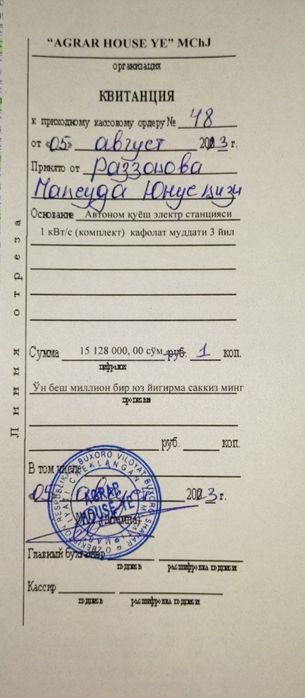 "AGRAR HOUSE YE" MChJ
организация
КВИТАНЦИЯ
к приходному кассовому ордеру № 48
от «05» август 2023 г.
Принято от Раззоқова
Мақсуда Юнус қизи
Основание Автоном қуёш электр станцияси
1 кВт/с (комплект) кафолат муддати 3 йил
Сумма 15 128 000, 00 сўм руб. 1 коп.
цифрами
Ўн беш миллион бир юз йигирма саккиз минг
прописью
руб. коп.
В том числе
05 август 2023 г.
AGRAR
HOUSE YE
Главный бухгалтер
подпись расшифровка подписи
Кассир
подпись расшифровка подписи
Линия отреза